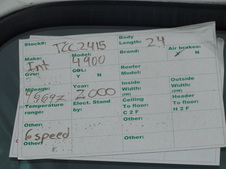 Stock#: TCC2415 Body Length: 24
Make: Int Model: 4900 Brand: Air brakes: Y N
Gvw: GBL: Y N Reefer Model:
Mileage: Year: 2000 Inside Width: Outside Width:
Temperature range: Elect. Stand by Ceiling Header To floor:
Y N C 2 F H 2 F
Other: Other:
6 speed
Other: